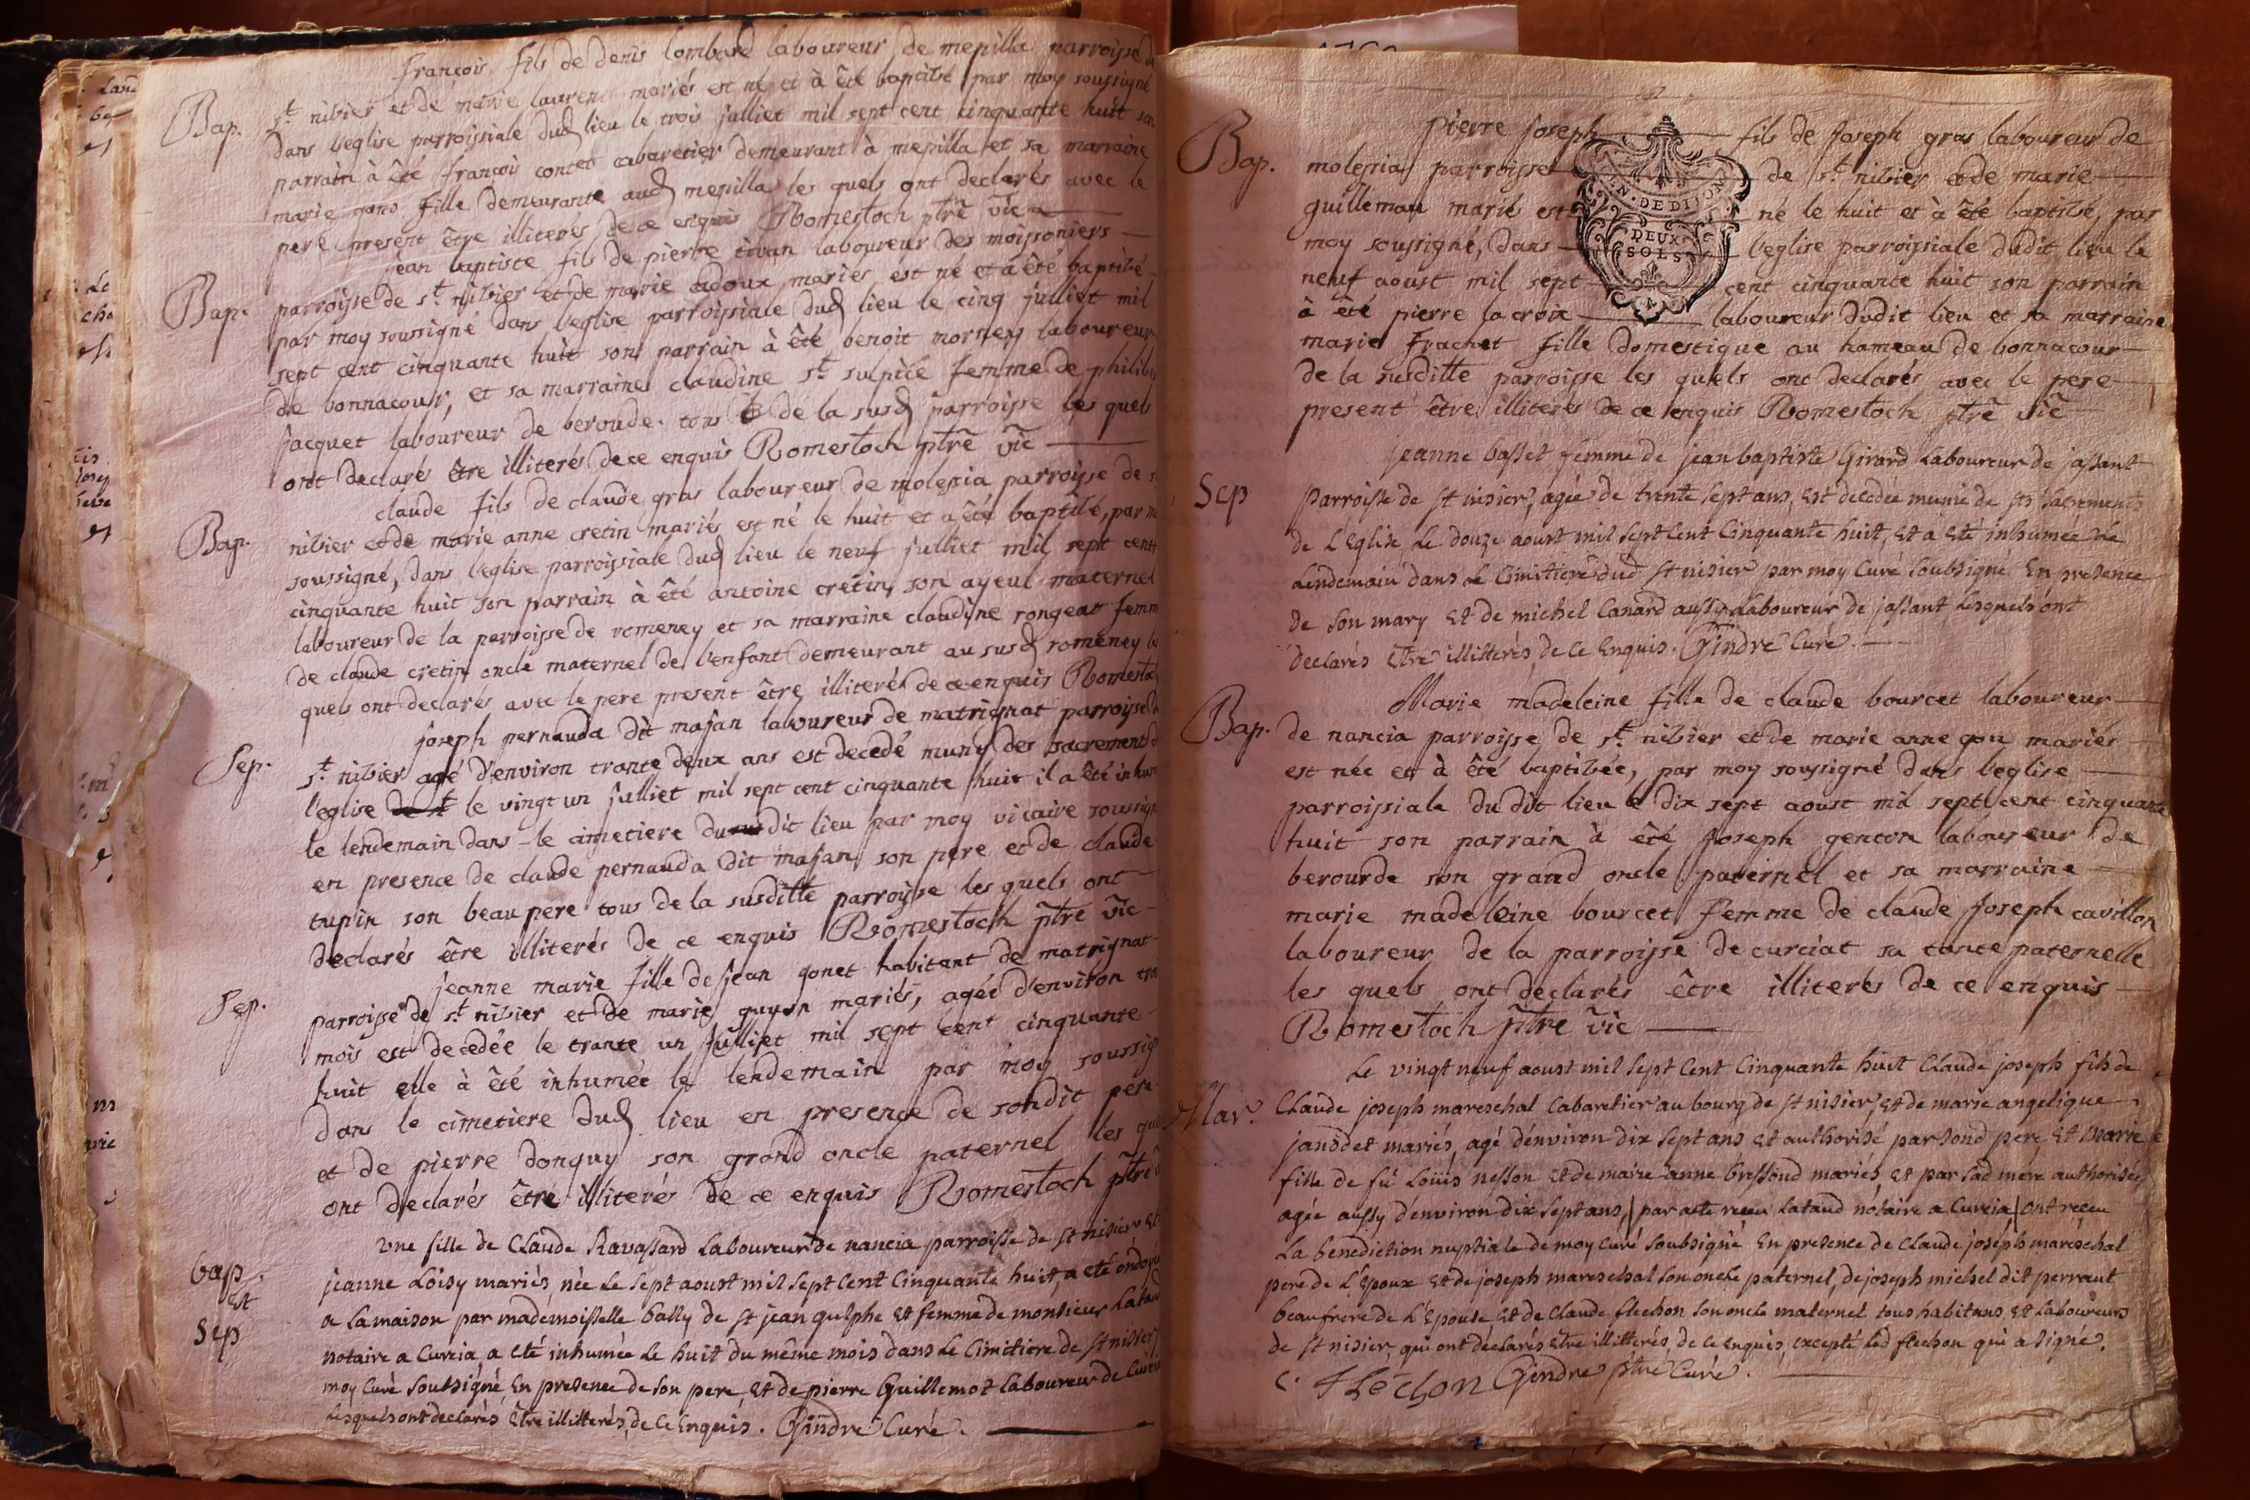 françois fils de denis lombard laboureur de mepilla parroisse
Bap. st. nibier et de marie laurenc mariés est né et à été baptisé par moy soussigné
dans l'eglise parroissiale dud lieu le trois julliet mil sept cent cinquante huit son
parrain à été françois contet cabaretier demeurant à mepilla et sa marraine
marie fille demeurante aud mepilla les quels ont declarés avec le
pere present être illiterés de ce enquis Romestoch ptre vic
jean baptiste fils de pierre tivan laboureur des moissoniers
Bap. parroisse de st. nibier et de marie adoux mariés est né et à été baptisé
par moy soussigné dans l'eglise parroissiale dud lieu le cinq julliet mil
sept cent cinquante huit son parrain à été benoit morney laboureur
de bonnacour, et sa marraine claudine st. sulpice femme de
jacquet laboureur de beroude. tous de la susd parroisse les quels
ont declarés être illiterés de ce enquis Romestoch ptre vic
claude fils de claude gras laboureur de molesia parroisse de
Bap. nibier et de marie anne cretin mariés est né le huit et à été baptisé, par
soussigné, dans l'eglise parroissiale dud lieu le neuf julliet mil sept cent
cinquante huit son parrain à été antoine cretin son ayeul maternel
laboureur de la parroisse de romeney et sa marraine claudine rongeat femme
de claude cretin oncle maternel de l'enfant demeurant au susd romeney
quels ont declarés avec le pere present être illiterés de ce enquis
joseph pernauda dit majan laboureur de matrignat parroisse
Sep. st. nibier agé d'environ trante deux ans est decedé muny des sacrements
l'eglise le vingt un julliet mil sept cent cinquante huit il a été
le lendemain dans le cimetiere dudit lieu par moy vicaire
en presence de claude pernauda dit majan son pere et de claude
tupin son beau pere tous de la susditte parroisse les quels ont
declarés être illiterés de ce enquis Romestoch ptre vic
jeanne marie fille de jean gonet habitant de matrignat
Sep. parroisse de st. nibier et de marie guyon mariés, agée d'environ
mois est decedée le trante un julliet mil sept cent cinquante
huit elle à été inhumée le lendemain par moy
dans le cimetiere dud lieu en presence de sondit pere
et de pierre donguy son grand oncle paternel les
ont declarés être illiterés de ce enquis Romestoch ptre
Une fille de Claude Ravassard Laboureur de nancia parroisse de st nisier Et
bap. jeanne Loisy mariés, née Le sept aoust mil sept Cent Cinquante huit, a eté
Et a la maison par mademoiselle bally de st jean Et femme de monsieur
Sep notaire a Curcia, a eté inhumée Le huit du même mois dans Le Cimitiere de st nisier
moy Curé Soubsigné, En presence de son pere, Et de pierre Guillemot Laboureur de
Lesquels ont declarés Être illitterés, de ce Enquis. Gindre Curé.
pierre joseph fils de joseph gras laboureur de
Bap. molesia parroisse de st. nibier et de marie
guillemau mariés est né le huit et à été baptisé, par
moy soussigné, dans l'eglise parroissiale dudit lieu le
neuf aoust mil sept cent cinquante huit son parrain
à été pierre la croix laboureur dudit lieu et sa marraine
marie frachet fille domestique au hameau de bonnacour
de la susditte parroisse les quels ont declarés avec le pere
present être illiterés de ce enquis Romestoch ptre vic
N. DE DIJON
DEUX
SOLS
jeanne basset femme de jean baptiste Girard Laboureur de jassant
Sep parroisse de st nisier, agée de trente sept ans, Est decedée munie de ses sacrements
de L'Eglise Le douze aoust mil sept Cent Cinquante huit, Et a eté inhumée Le
Lendemain dans Le Cimitiere dud st nisier par moy Curé Soubsigné En presence
de Son mary Et de michel Canard aussy Laboureur de jassant, Lesquels ont
declarés Être illitterés, de ce Enquis. Gindre Curé.
Marie madeleine fille de claude bourcet laboureur
Bap. de nancia parroisse de st. nibier et de marie anne mariés
est née et à été baptisée, par moy soussigné dans l'eglise
parroissiale dudit lieu le dix sept aoust mil sept cent cinquante
huit son parrain à été joseph gencon laboureur de
berourde son grand oncle paternel et sa marraine
marie madeleine bourcet femme de claude joseph cavillon
laboureur de la parroisse de curciat sa tante paternelle
les quels ont declarés être illiterés de ce enquis
Romestoch ptre vic
Le vingt neuf aoust mil sept Cent Cinquante huit Claude joseph fils de
Mar. Claude joseph mareschal Cabaretier au bourg de st nisier, Et de marie angelique
jandet mariés, agé d'environ dix sept ans Et authorisé par sond pere, Et Marie
fille de fû Loüis nesson Et de marie anne bressoud mariés, Et par sad mere authorisée,
agée aussy d'environ dix sept ans, par acte receu Lataud notaire a Curcia ont receu
La benediction nuptiale de moy Curé Soubsigné En presence de Claude joseph mareschal
pere de L'Epoux Et de joseph mareschal son oncle paternel, de joseph michel dit perraut
beaufrere de L'Epouse Et de Claude flechon son oncle maternel tous habitans Et Laboureurs
de st nisier, qui ont déclarés Etre illitterés, de ce Enquis, excepté Led flechon qui a signé.
C. Fléchon Gindre ptre Curé.